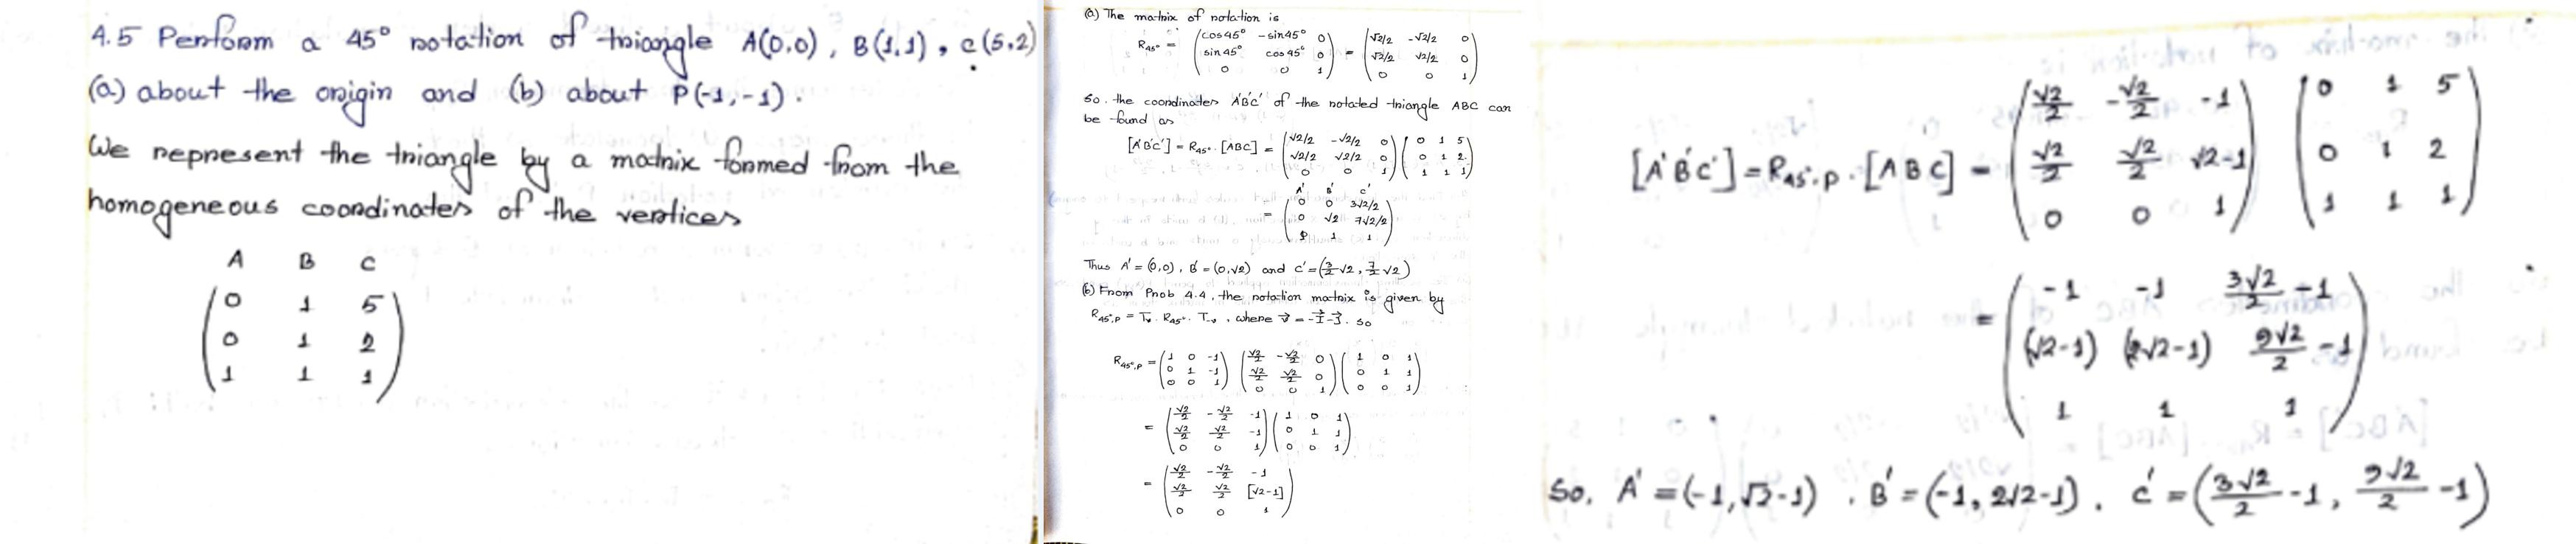 4.5 Perform a 45° rotation of triangle A(0,0), B(1,1), C(5,2)
(a) about the origin and (b) about P(-1,-1).
We represent the triangle by a matrix formed from the
homogeneous coordinates of the vertices
A B C
0 1 5
0 1 2
1 1 1
(a) The matrix of rotation is
R45° = (cos45° -sin45° 0) = (√2/2 -√2/2 0)
sin45° cos45° 0 √2/2 √2/2 0
0 0 1 0 0 1
So. the coordinates A'B'C' of the rotated triangle ABC can
be found as
[A'B'C'] = R45°. [ABC] = (√2/2 -√2/2 0) (0 1 5)
√2/2 √2/2 0 0 1 2
0 0 1 1 1 1
A' B' C'
= 0 0 3√2/2
0 √2 7√2/2
1 1 1
Thus A' = (0,0), B' = (0,√2) and C' = (3/2 √2, 7/2 √2)
(b) From Prob 4.4, the rotation matrix is given by
R45°,P = Tv. R45°. T-v, where v⃗ = -I⃗-J⃗. so
R45°,P = (1 0 -1) (√2/2 -√2/2 0) (1 0 1)
0 1 -1 √2/2 √2/2 0 0 1 1
0 0 1 0 0 1 0 0 1
= (√2/2 -√2/2 -1) (1 0 1)
√2/2 √2/2 -1 0 1 1
0 0 1 0 0 1
= (√2/2 -√2/2 -1)
√2/2 √2/2 [√2-1]
0 0 1
[A'B'C'] = R45°,P . [ABC] = (√2/2 -√2/2 -1) (0 1 5)
√2/2 √2/2 √2-1 0 1 2
0 0 1 1 1 1
= (-1 -1 3√2/2 -1)
(√2-1) (2√2-1) 9√2/2 -1
1 1 1
So, A' = (-1, √2-1) . B' = (-1, 2√2-1). C' = (3√2/2 -1, 9√2/2 -1)